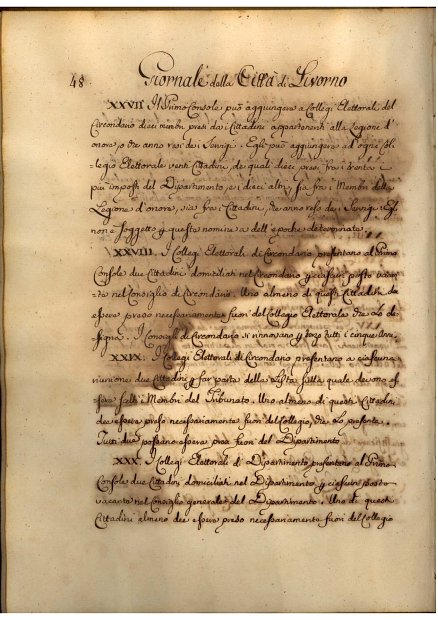 48. Giornale della Città di Livorno
XXVII. Il Primo Console può aggiungere a Collegi Elettorali del
Circondario dieci membri presi da i Cittadini appartenenti alla Legione d'
onore, o che anno resi dei Servigi. Egli può aggiungere ad ogni Col-
legio Elettorale venti Cittadini, de quali dieci presi fra i trenta
più imposti del Dipartimento, e i dieci altri, sia fra i Membri della
Legione d'onore, sia fra i Cittadini, che anno reso dei Servigi. Egli
non è soggetto p queste nomine a dell'epoche determinate
XXVIII. I Collegi Elettorali di Circondario presentano al Primo
Console due Cittadini domiciliati nel Circondario p ciascun posto vacan-
te nel Consiglio di Circondario. Uno almeno di questi Cittadini de
essere preso necessariamente fuori del Collegio Elettorale che lo de-
signa. I Consigli di Circondario si rinnovano p terzo tutti i cinque Anni.
XXIX. I Collegi Elettorali di Circondario presentano a ciascuna
riunione due Cittadini p far parte della Lista sulla quale devono es-
sere scelti i Membri del Tribunato. Uno almeno di questi Cittadini
dee essere preso necessariamente fuori del Collegio, che lo presenta.
Tutti due possono essere presi fuori del Dipartimento
XXX. I Collegi Elettorali di Dipartimento presentano al Primo
Console due Cittadini domiciliati nel Dipartimento p ciascun posto
vacante nel Consiglio generale del Dipartimento. Uno di questi
Cittadini almeno dee essere preso necessariamente fuori del Collegio